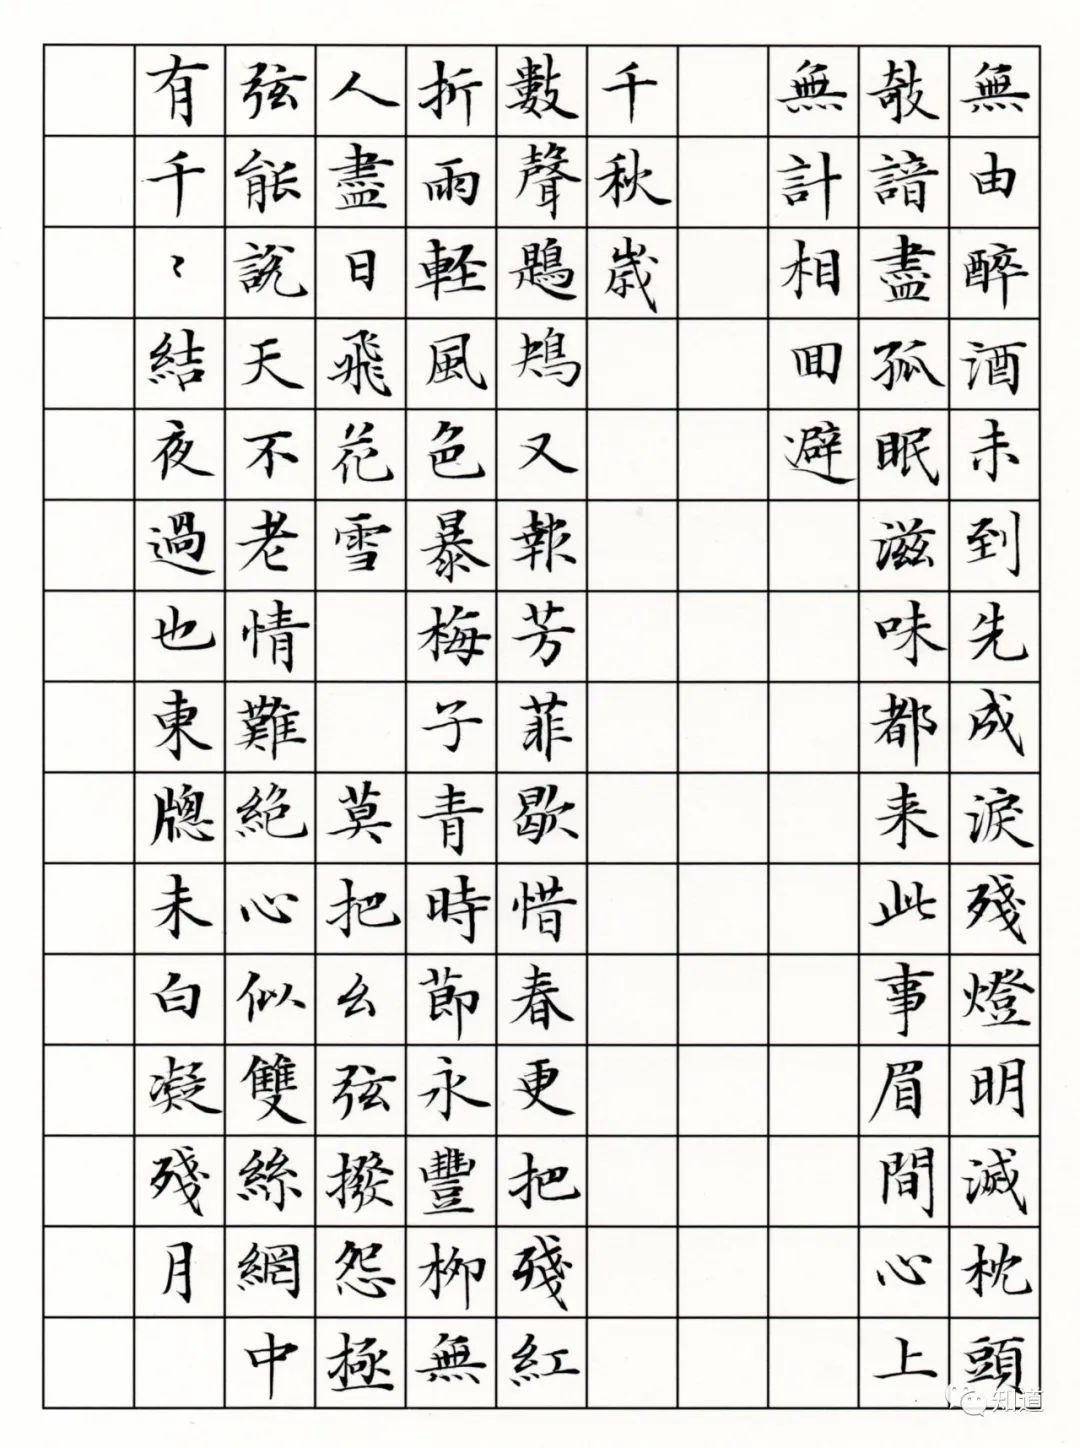 無由醉酒未到先成淚殘燈明滅枕頭
敧諳盡孤眠滋味都来此事眉間心上
無計相回避
千秋歲
數聲鶗鴂又報芳菲歇惜春更把殘紅
折雨輕風色暴梅子青時節永豐柳無
人盡日飛花雪 莫把幺弦撥怨極
弦能說天不老情難絕心似雙絲網中
有千〻結夜過也東牕未白凝殘月
知道